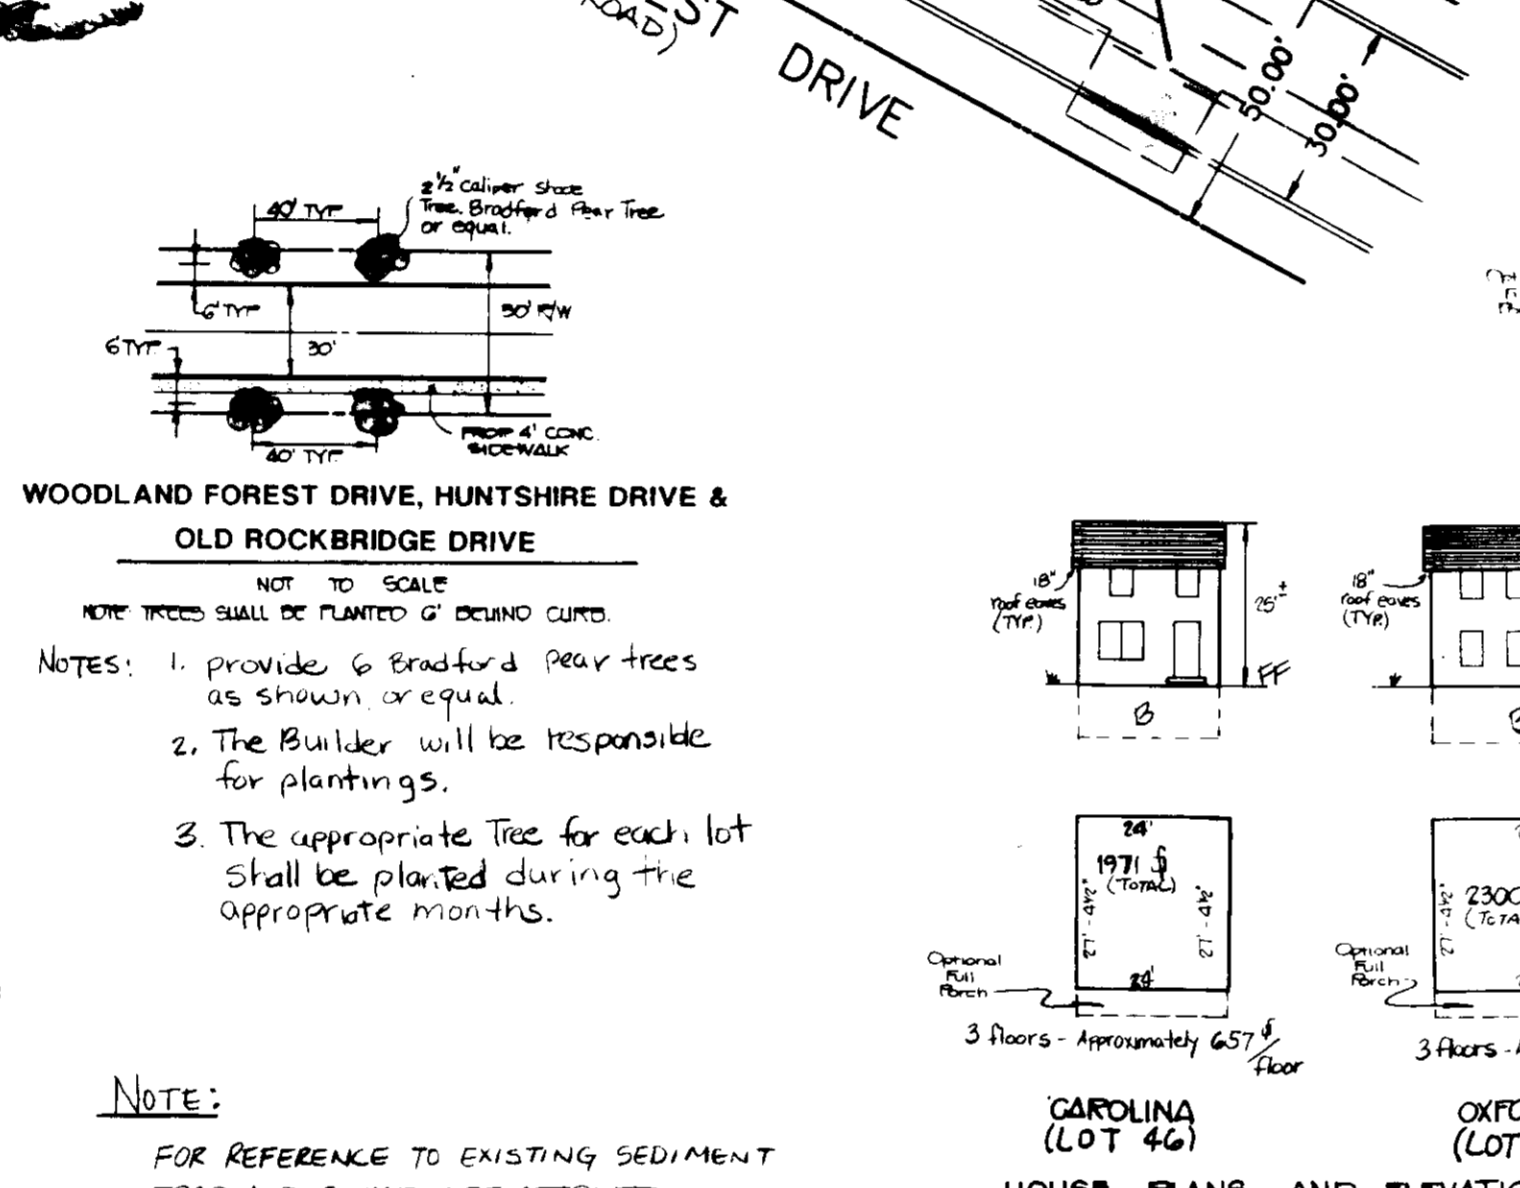 ROAD)
DRIVE
50.00'
30.00'
2½" Caliper Shade
Tree. Bradford Pear Tree
or equal.
40' TYP
6' TYP
50' R/W
6' TYP.
30'
PROP 4' CONC.
SIDEWALK
40' TYP.
WOODLAND FOREST DRIVE, HUNTSHIRE DRIVE &
OLD ROCKBRIDGE DRIVE
NOT TO SCALE
NOTE: TREES SHALL BE PLANTED 6' BEHIND CURB.
NOTES: 1. provide 6 Bradford pear trees
as shown or equal.
2. The Builder will be responsible
for plantings.
3. The appropriate Tree for each lot
shall be planted during the
appropriate months.
NOTE:
FOR REFERENCE TO EXISTING SEDIMENT
18"
roof eaves
(TYP.)
25' ±
FF
B
24'
1971
(TOTAL)
24'
Optional
Full
Porch
3 floors - Approximately 657
/floor
CAROLINA
(LOT 46)
18"
roof eaves
(TYP.)
2300
Optional
Full
Porch
3 floors -
(LOT
HOUSE PLANS AND